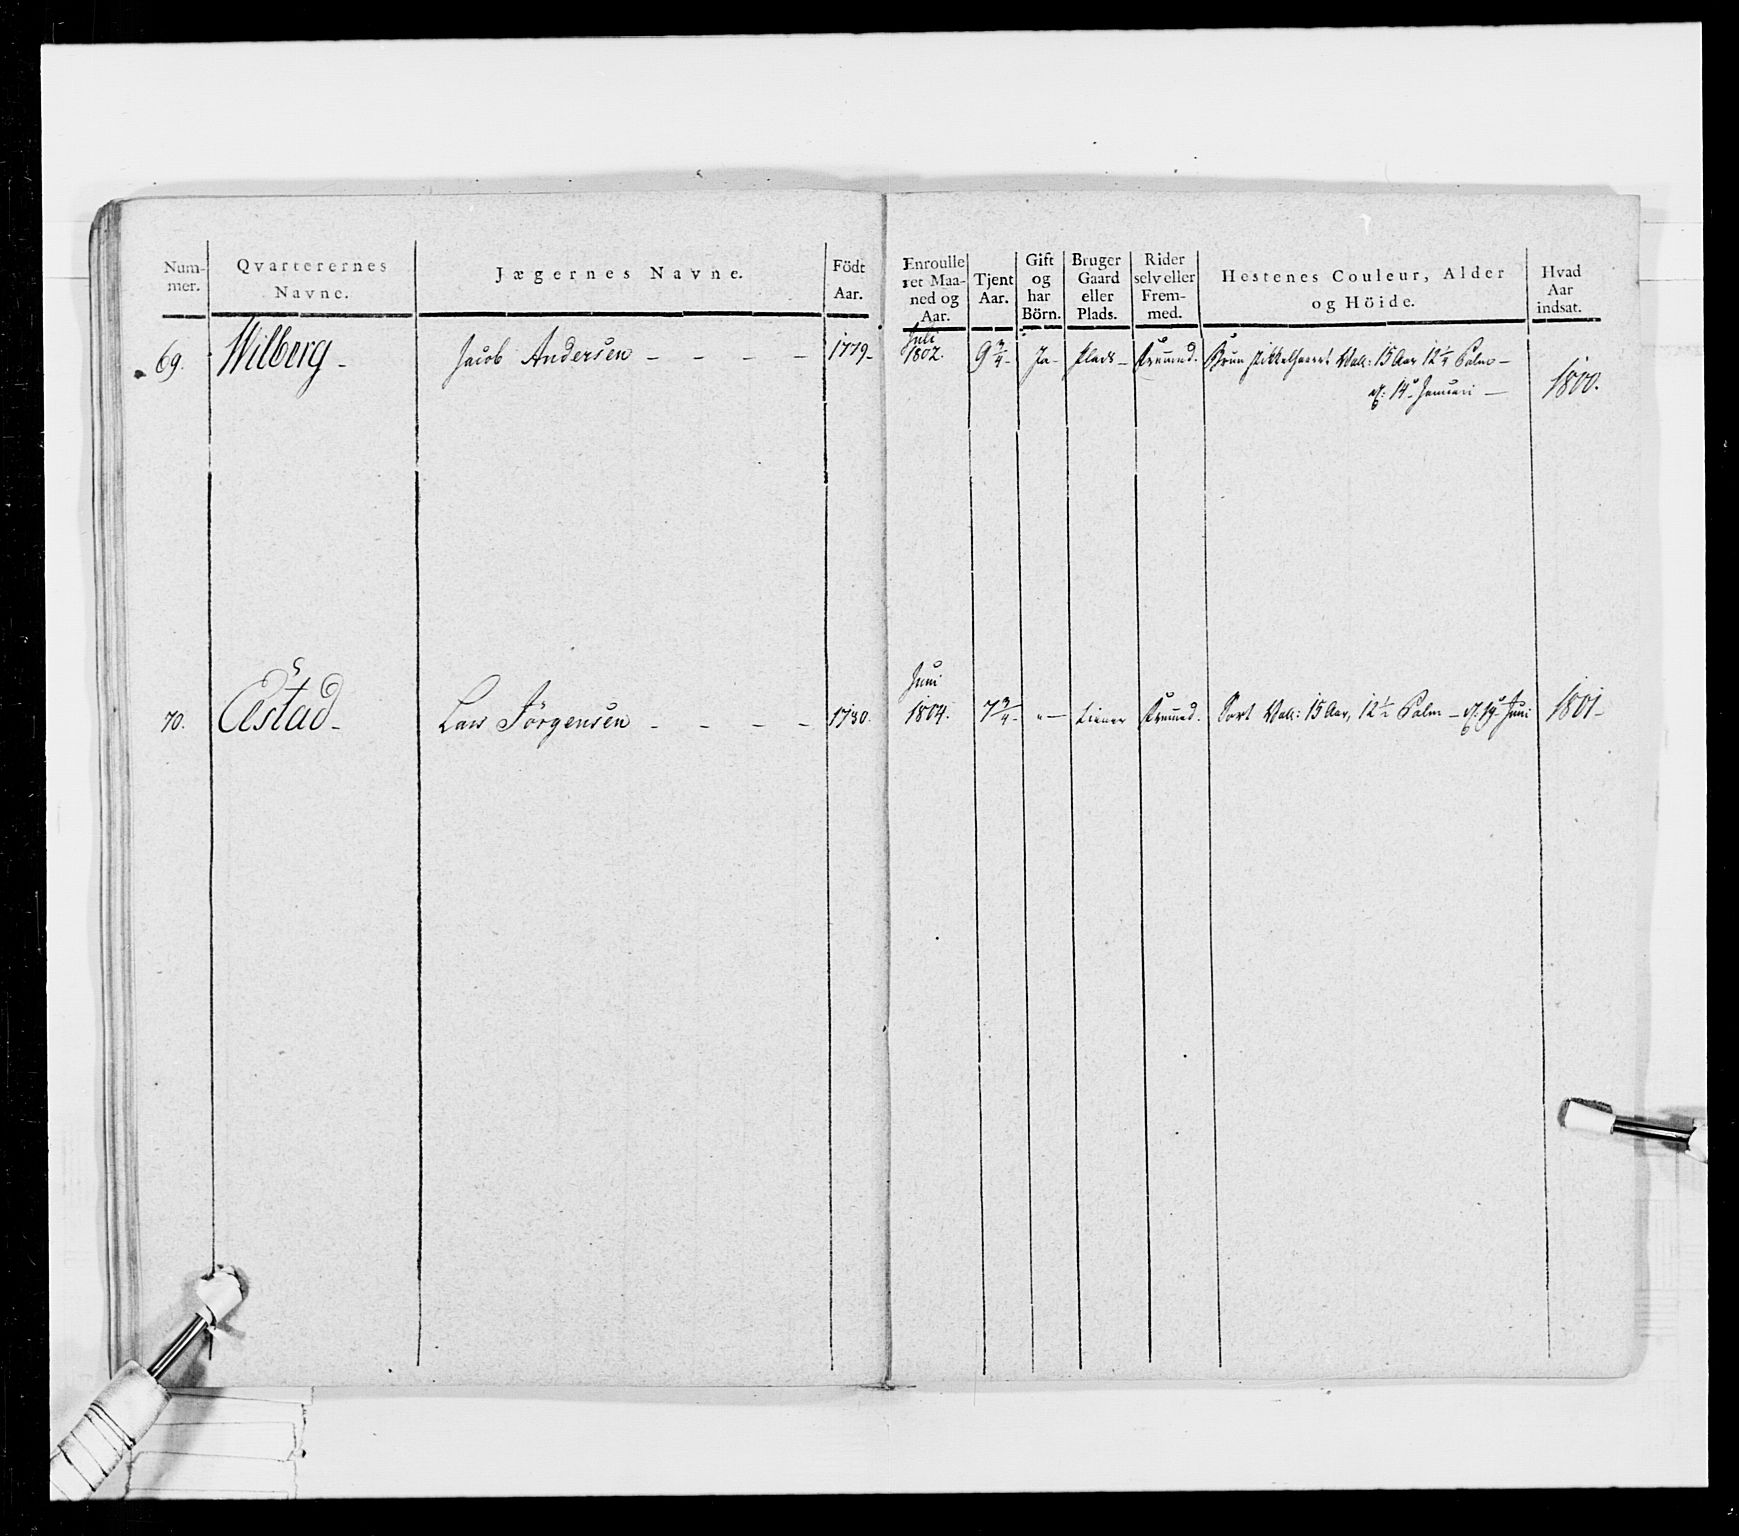 Num-
mer.
Qvarterernes
Navne.
Jægernes Navne.
Födt
Aar.
Enroulle
ret Maa-
ned og
Aar.
Tjent
Aar.
Gift
og
har
Börn.
Bruger
Gaard
eller
Plads.
Rider
selv eller
Frem-
med.
Hestenes Couleur, Alder
og Höide.
Hvad
Aar
indsat.
69. Wilberg - Jacob Andersen - - - - 1779- Juli
1802. 9 3/4- Ja- Plads- Fremmed. Brun stikkelhaaret Val: 15 Aar 12 1/4 Palm-
14 Januari - 1800.
70. Æstad- Lars Jörgensen - - - - 1780. Juni
1804. 7 3/4- "- Tiener Fremmed. Sort Val: 15 Aar, 12 1/2 Palm - 19 Juni 1801-